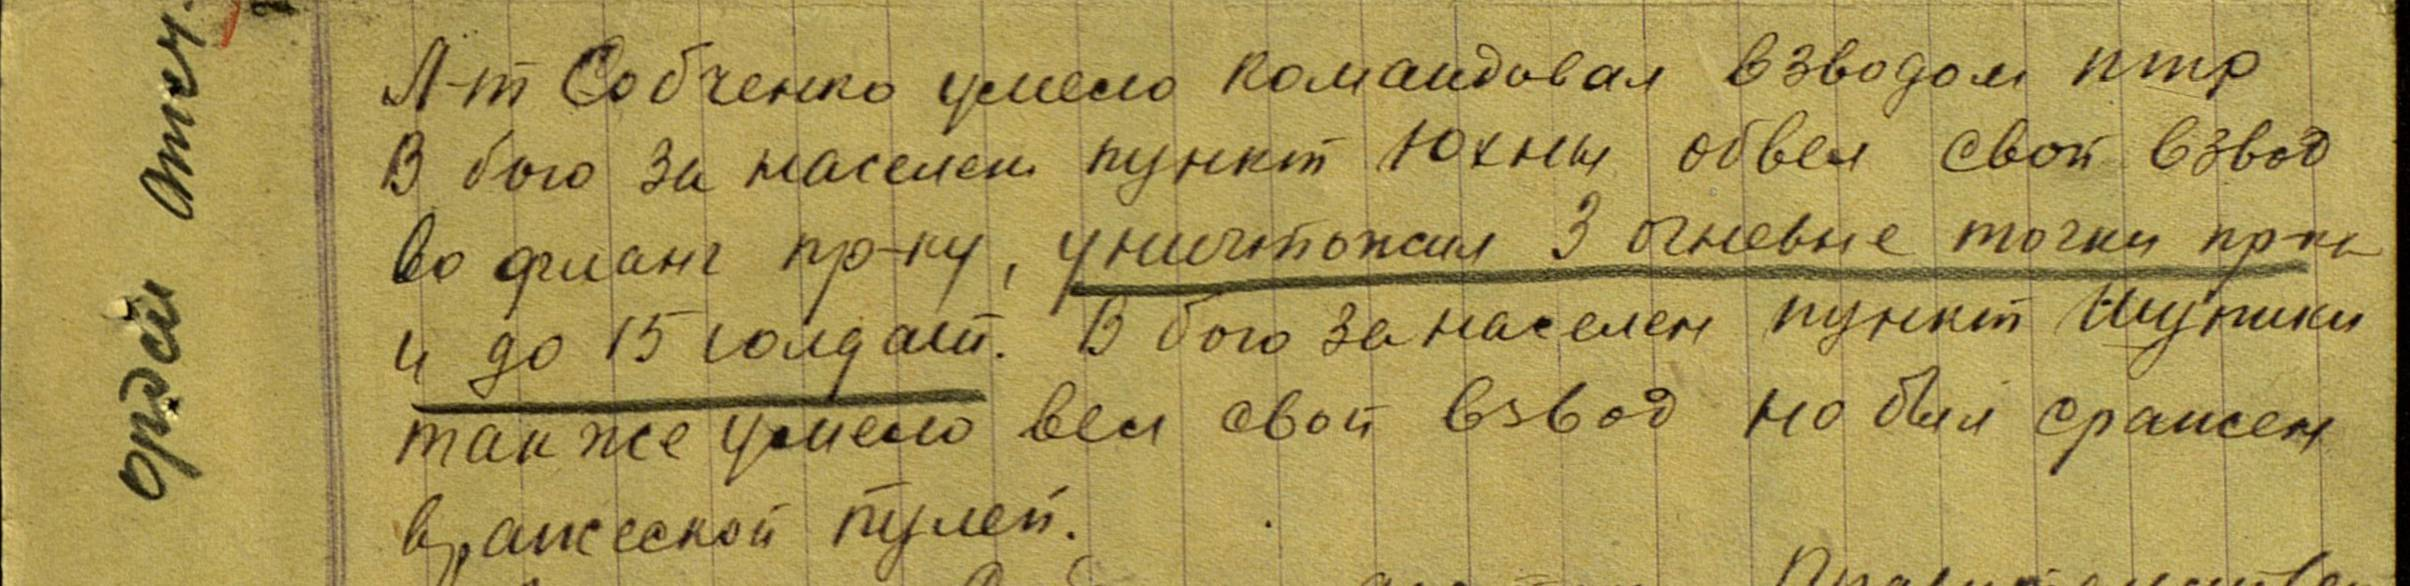 орден Отеч.
Л-т Собченко умело командовал взводом птр
В бою за населен пункт Юхны обвел свой взвод
во фланг пр-ку, уничтожил 3 огневые точки пр-ка
и до 15 солдат. В бою за населен пункт Шупики
так же умело вел свой взвод но был сражен
вражеской пулей.